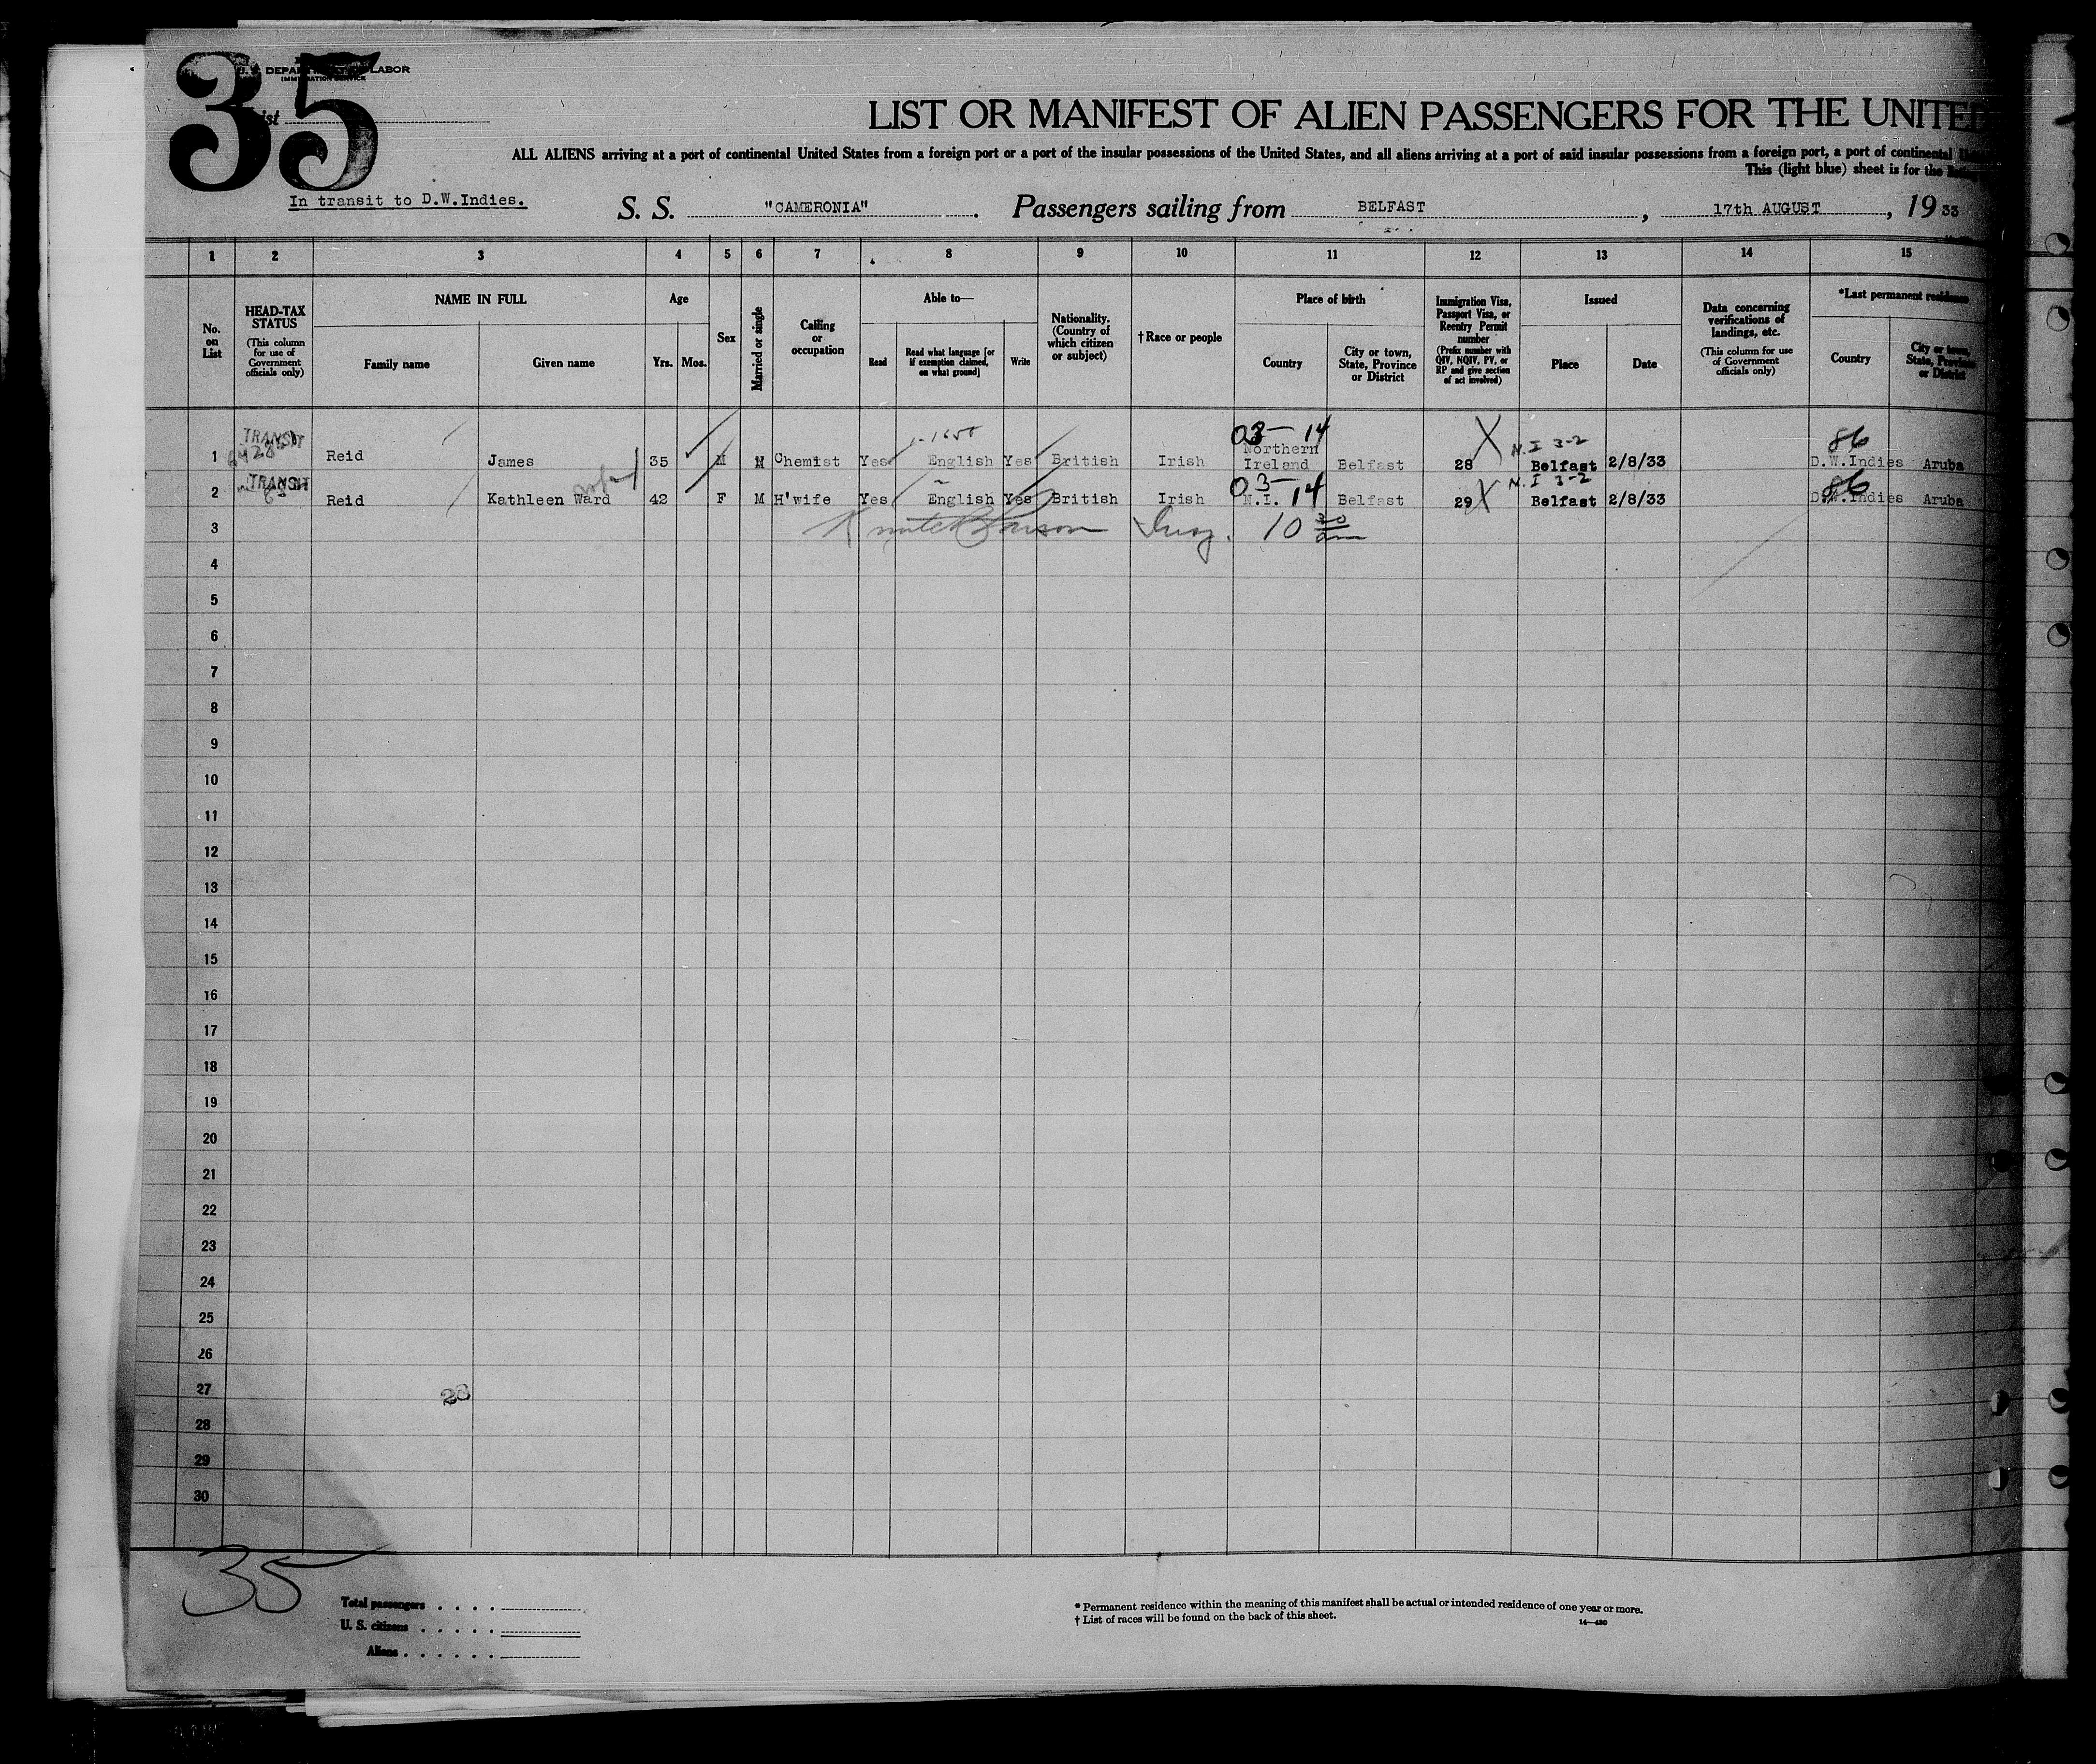 35
U. S. DEPARTMENT OF LABOR
IMMIGRATION SERVICE
List
LIST OR MANIFEST OF ALIEN PASSENGERS FOR THE UNITED
ALL ALIENS arriving at a port of continental United States from a foreign port or a port of the insular possessions of the United States, and all aliens arriving at a port of said insular possessions from a foreign port, a port of continental
This (light blue) sheet is for the
In transit to D.W.Indies. S. S. "CAMERONIA". Passengers sailing from BELFAST, 17th AUGUST, 1933
1 2 3 4 5 6 7 8 9 10 11 12 13 14 15
No. on List
HEAD-TAX STATUS (This column for use of Government officials only)
NAME IN FULL
Family name Given name
Age
Yrs. Mos.
Sex
Married or single
Calling or occupation
Able to—
Read Read what language [or if exemption claimed, on what ground] Write
Nationality. (Country of which citizen or subject)
†Race or people
Place of birth
Country City or town, State, Province or District
Immigration Visa, Passport Visa, or Reentry Permit number (Prefix number with QIV, NQIV, PV, or RP and give section of act involved)
Issued
Place Date
Data concerning verifications of landings, etc. (This column for use of Government officials only)
*Last permanent residence
Country City or town, State, Province or District
TRANSIT 03- 14 X N.I 3-2 86
1 Reid James 35 M M Chemist Yes English Yes British Irish Northern Ireland Belfast 28 Belfast 2/8/33 D.W.Indies Aruba
TRANSIT 03- 14 X N.I 3-2 86
2 Reid Kathleen Ward 42 F M H'wife Yes English Yes British Irish N.I. Belfast 29 Belfast 2/8/33 D.W.Indies Aruba
3 Insp. 10 30 am
4
5
6
7
8
9
10
11
12
13
14
15
16
17
18
19
20
21
22
23
24
25
26
27
28
29
30
35
Total passengers . . . .
U. S. citizens . . . . .
Aliens . . . . . .
* Permanent residence within the meaning of this manifest shall be actual or intended residence of one year or more.
† List of races will be found on the back of this sheet.
14—430